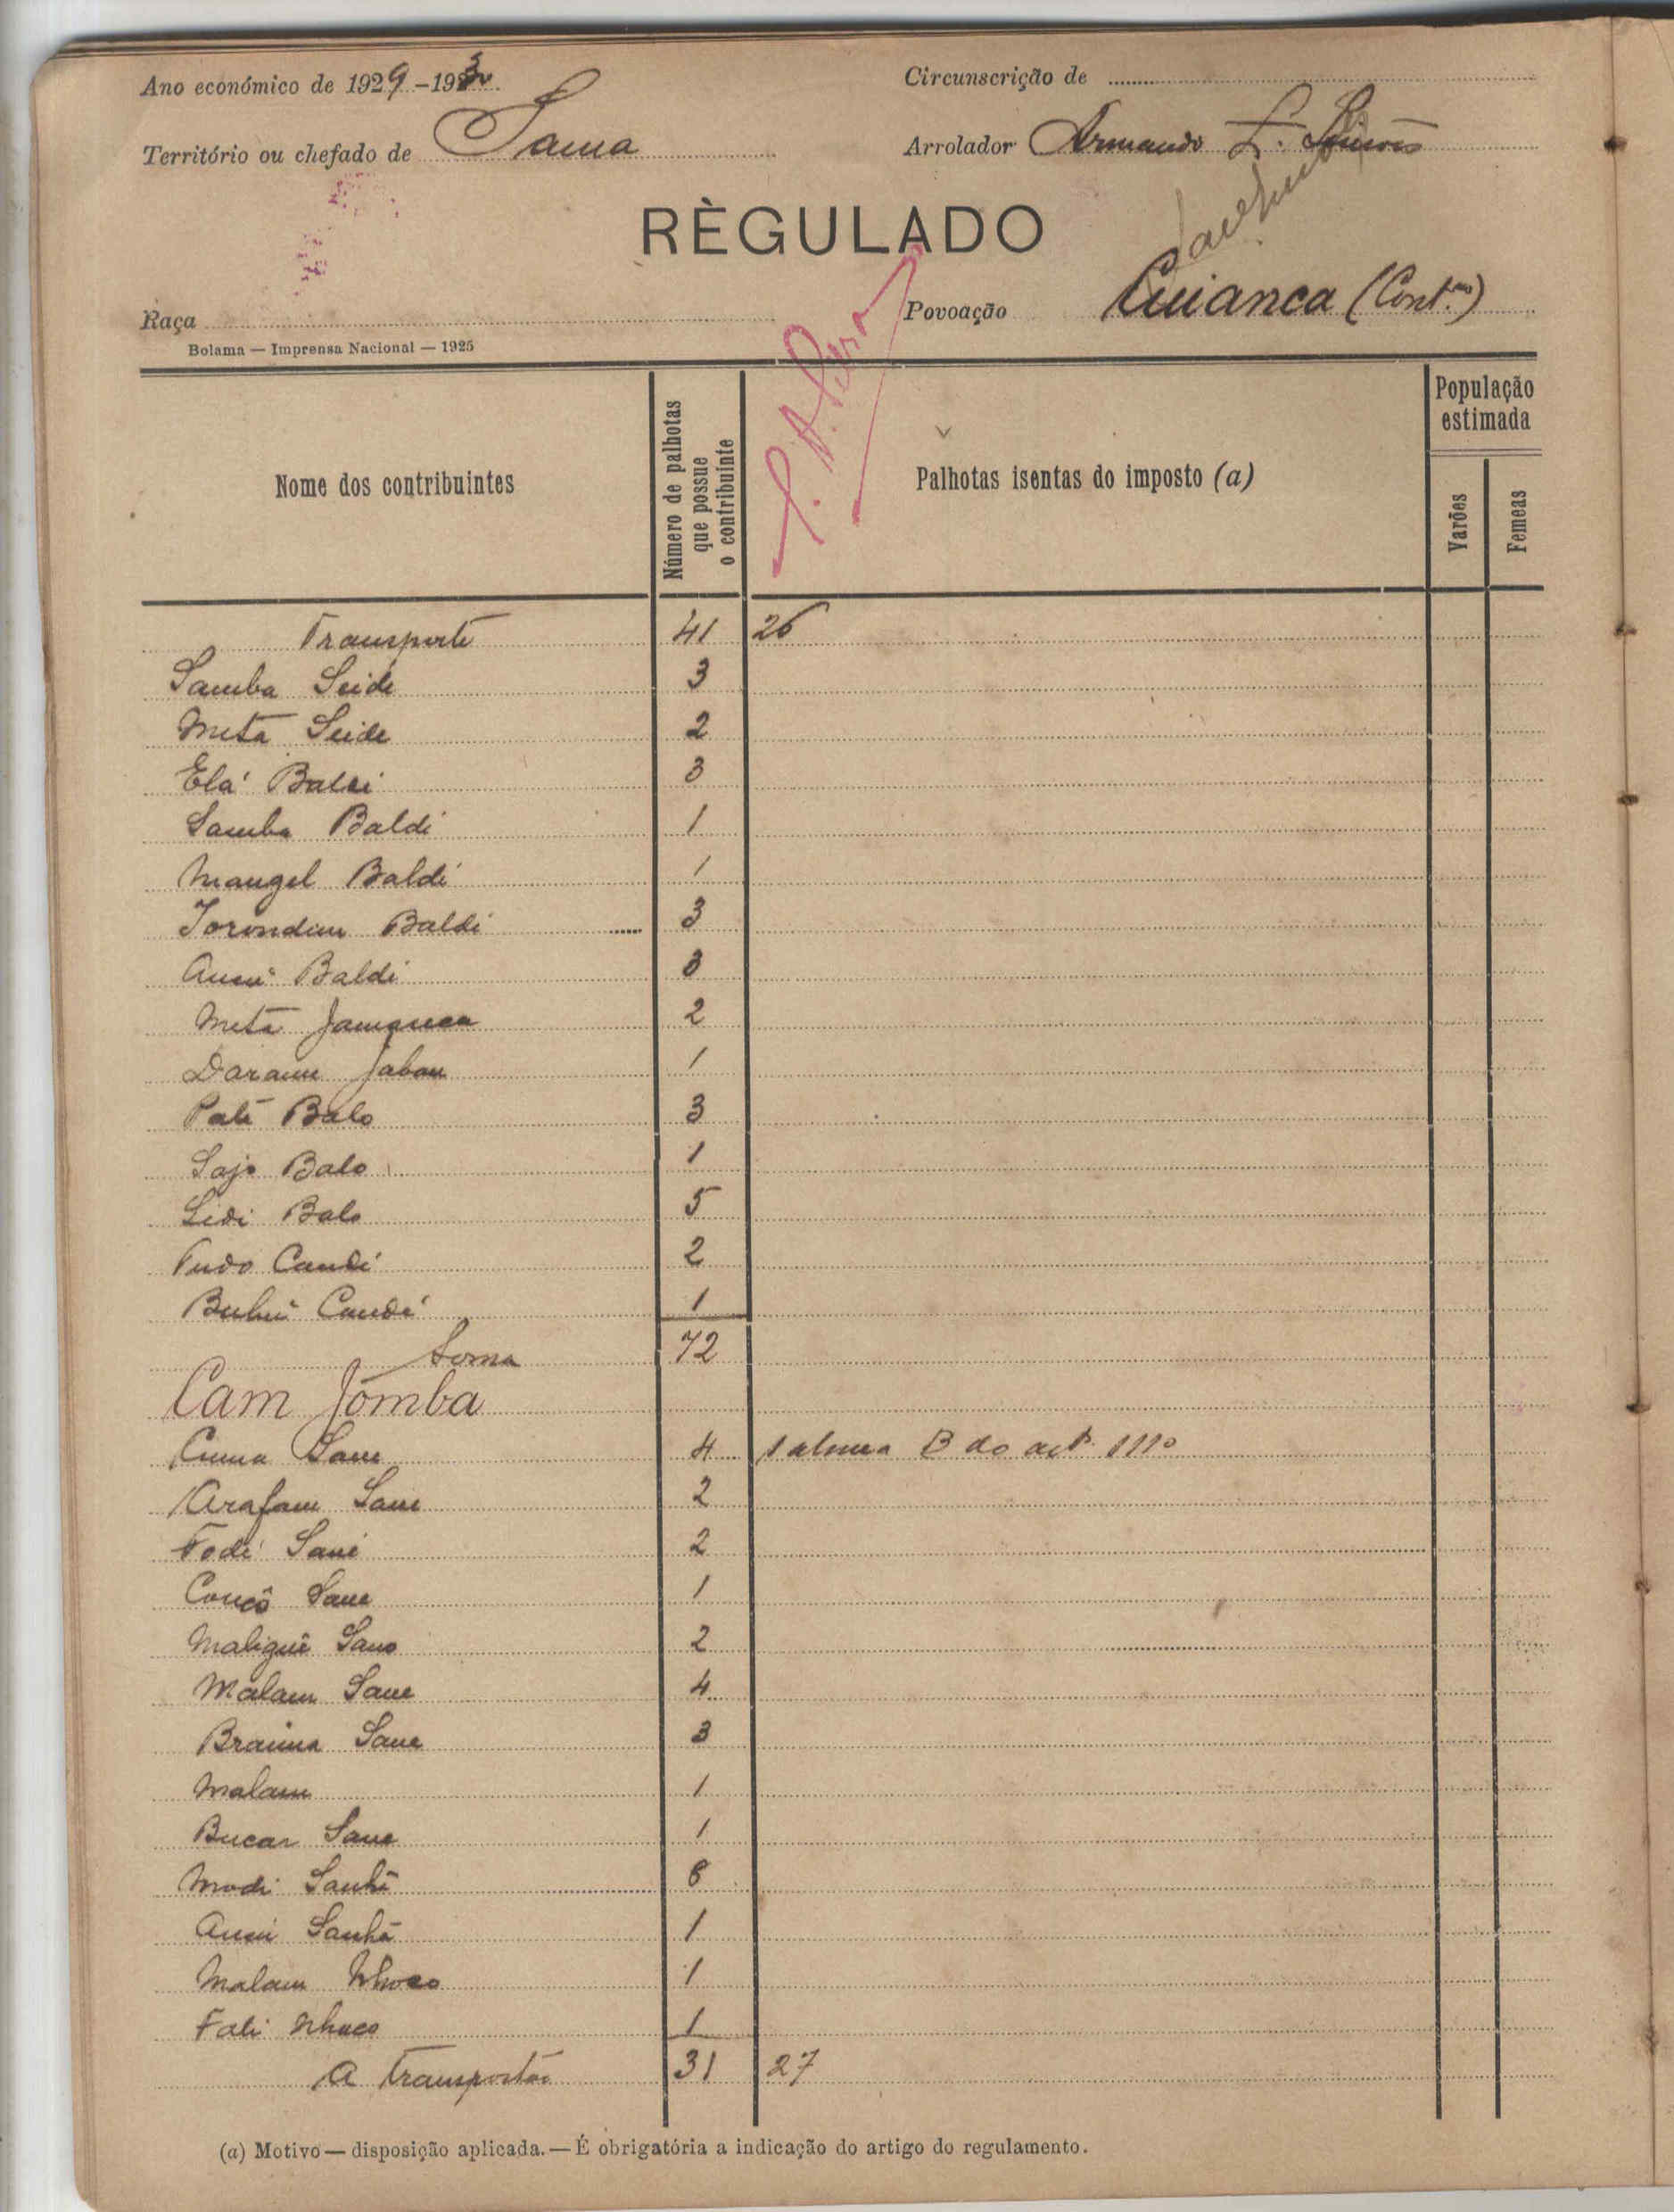 Ano económico de 1929-1930
Circunscrição de
Território ou chefado de Sama
Arrolador Armando L. Simões
RÈGULADO
Raça
Povoação Cuianca (Cont.ão)
Bolama — Imprensa Nacional — 1925
Nome dos contribuintes
Número de palhotas
que possue
o contribuinte
Palhotas isentas do imposto (a)
População
estimada
Varões
Femeas
Transporte 41 26
Samba Seide 3
Meta Seide 2
Elá Baldé 3
Samba Baldé 1
Mangel Baldé 1
Baldé 3
Baldé 3
Meta 2
1
Paté Balo 3
Sajo Balo 1
Sidi Balo 5
Tudo Candé 2
Candé 1
Soma 72
Cam Jomba
Cuma Sane 4 1 alinea B do artº 111º
Arafam Sane 2
Fodé Sané 2
Sane 1
Maliguê Sano 2
Malam Sane 4
Braima Sane 3
Malam 1
Bucar Sane 1
Modi Sanhá 8
Sanhá 1
Malam 1
Fali Nhaco 1
A transportar 31 27
(a) Motivo — disposição aplicada. — É obrigatória a indicação do artigo do regulamento.